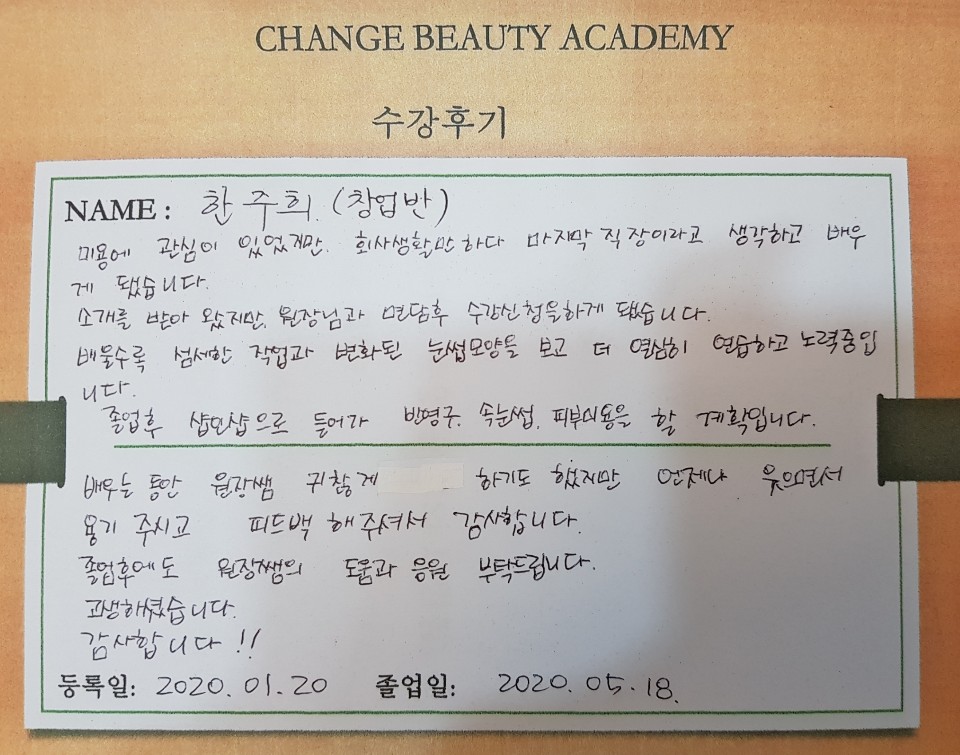 CHANGE BEAUTY ACADEMY
수강후기
NAME : 한주희. (창업반)
미용에 관심이 있었지만. 회사생활만하다 마지막 직장이라고 생각하고 배우
게 됐습니다.
소개를 받아 왔지만, 원장님과 면담후 수강신청을하게 됐습니다.
배울수록 섬세한 작업과 변화된 눈썹모양을 보고 더 열심히 연습하고 노력중입
니다.
졸업후 샵인샵으로 들어가 반영구. 속눈썹. 피부미용을 할 계획입니다.
배우는 동안 원장쌤 귀찮게 하기도 했지만 언제나 웃으면서
용기 주시고 피드백 해주셔서 감사합니다.
졸업후에도 원장쌤의 도움과 응원 부탁드립니다.
고생하셨습니다.
감사합니다 !!
등록일: 2020. 01. 20 졸업일: 2020. 05. 18.